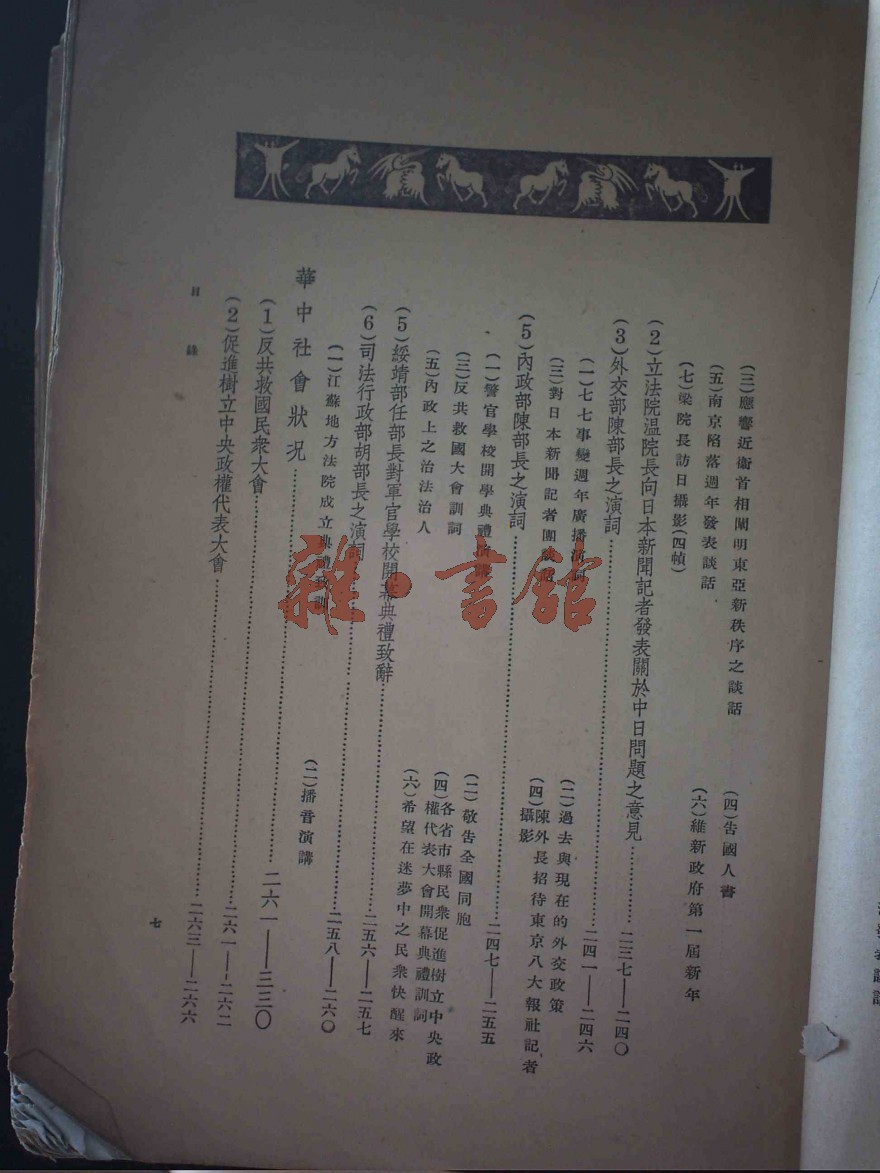 (三)應響近衞首相闡明東亞新秩序之談話
(四)告國人書
(五)南京陷落週年發表談話
(六)維新政府第一屆新年
(七)梁院長訪日攝影(四幀)
(2)立法院溫院長向日本新聞記者發表關於中日問題之意見…………二三七——二四〇
(3)外交部陳部長之演詞…………二四一——二四六
(一)七七事變週年廣播演詞
(二)過去與現在的外交政策
(三)對日本新聞記者團談話
(四)陳外長招待東京八大報社記者
攝影
(5)內政部陳部長之演詞…………二四七——二五五
(一)警官學校開學典禮演講
(二)敬告全國同胞
(三)反共救國大會訓詞
(四)各省市縣民衆促進樹立中央政
權代表大會開幕典禮訓詞
(五)內政上之治法治人
(六)希望在迷夢中之民衆快醒來
(5)綏靖部任部長對軍官學校開幕典禮致辭…………二五六——二五七
(6)司法行政部胡部長之演詞…………二五八——二六〇
(一)江蘇地方法院成立典禮致訓
(二)播音演講
華中社會狀况…………二六一——三三〇
(1)反共救國民衆大會…………二六一——二六二
(2)促進樹立中央政權代表大會…………二六三——二六六
目錄
七
雜·書館